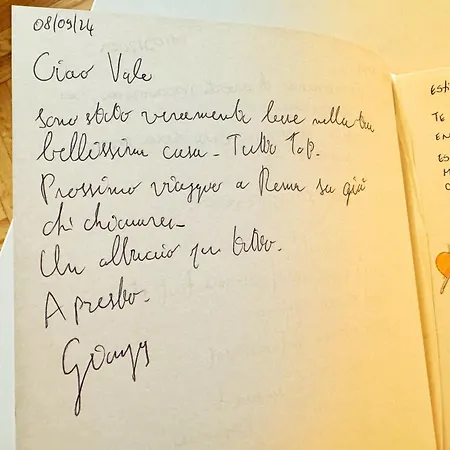 08/09/24
Ciao Vale
sono stato veramente bene nella tua
bellissima casa - Tutto Top.
Prossimo viaggio a Roma so già
chi chiamare -
Un abbraccio per tutto.
A presto.
Esti
TE
EN
ES
M